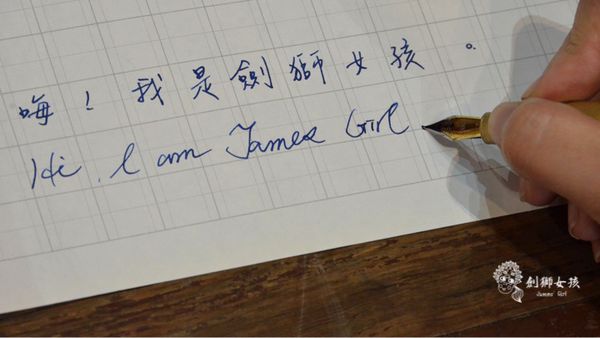 嗨！我是劍獅女孩。
Hi, I am James Girl
劍獅女孩
James Girl